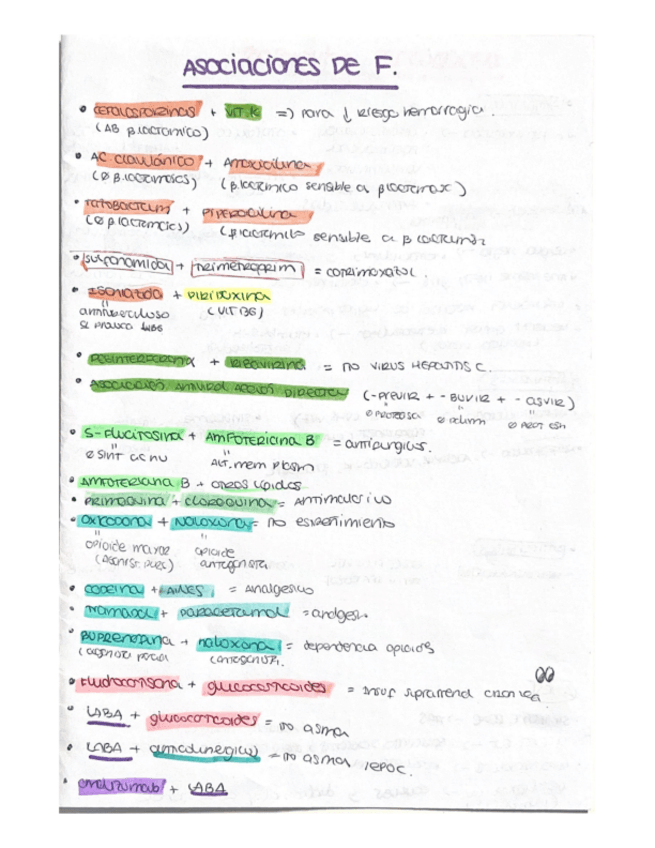 ASOCIACIONES DE F.
• CEFALOSPORINAS + VIT.K => para ↓ riesgo hemorragia.
(AB βlactámico)
• AC. Clavulánico + Amoxicilina
(∅ β.lactamasas) (β.lactámico sensible a βlactamasa)
• Tatobactum + Piperacilina
(∅ βlactamasas) (βlactámico sensible a β lactamasa
• Sulfonamida + Trimetroprim = cotrimoxazol.
• Isoniazida + Piridoxina
antituberculoso (VIT B6)
• PEGINTERFERONA + RIBAVIRINA = no VIRUS HEPATITIS C.
• ASOCIACIONES ANTIVIRAL ACCIÓN DIRECTA (-PREVIR + -BUVIR + -ASVIR)
∅ PROTEASA ∅ polim
• 5-Flucitosina + AMFOTERICINA B = antifungicos.
∅ SINT ac nu ALT. mem plasm
• AMFOTERICINA B + otros lípidos
• PRIMAQUINA + CLOROQUINA = Antimalárico
• OXICODONA + NALOXONA = no estreñimiento
opioide mayor opioide
(Agonist. puro) antagonista
• codeína + AINES = Analgésico
• tramadol + paracetamol = analges.
• BUPRENORFINA + naloxona = dependencia opioides
(agonista parcial (antagonista.
• Fludrocortisona + glucocorticoides = Insuf suprarrenal crónica
• LABA + glucocorticoides = no asma
• LABA + anticolinérgico = no asma /EPOC.
• omalizumab + LABA